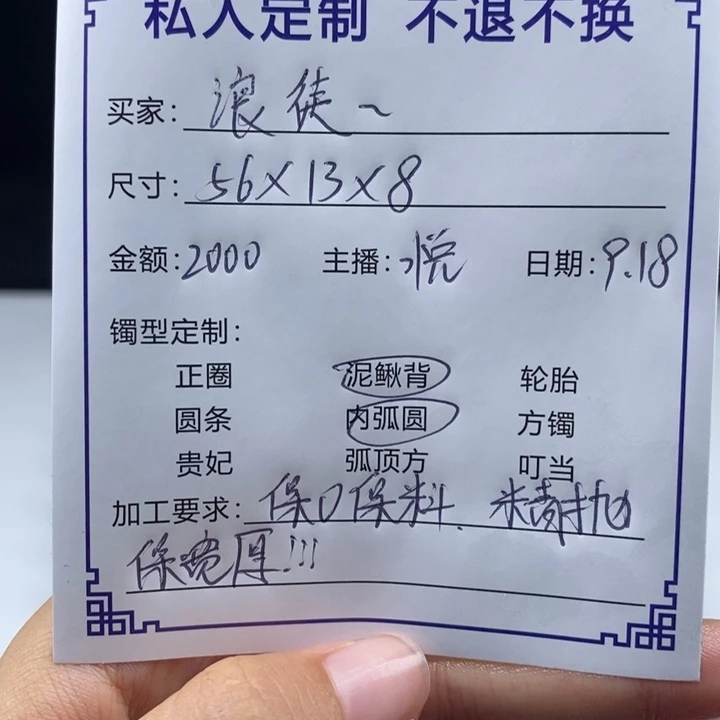 私人定制 不退不换
买家: 浪徒~
尺寸: 56×13×8
金额:2000 主播:小悦 日期:9.18
镯型定制:
正圈 泥鳅背 轮胎
圆条 内弧圆 方镯
贵妃 弧顶方 叮当
加工要求: 保口保料. 精抛
保宽厚!!!